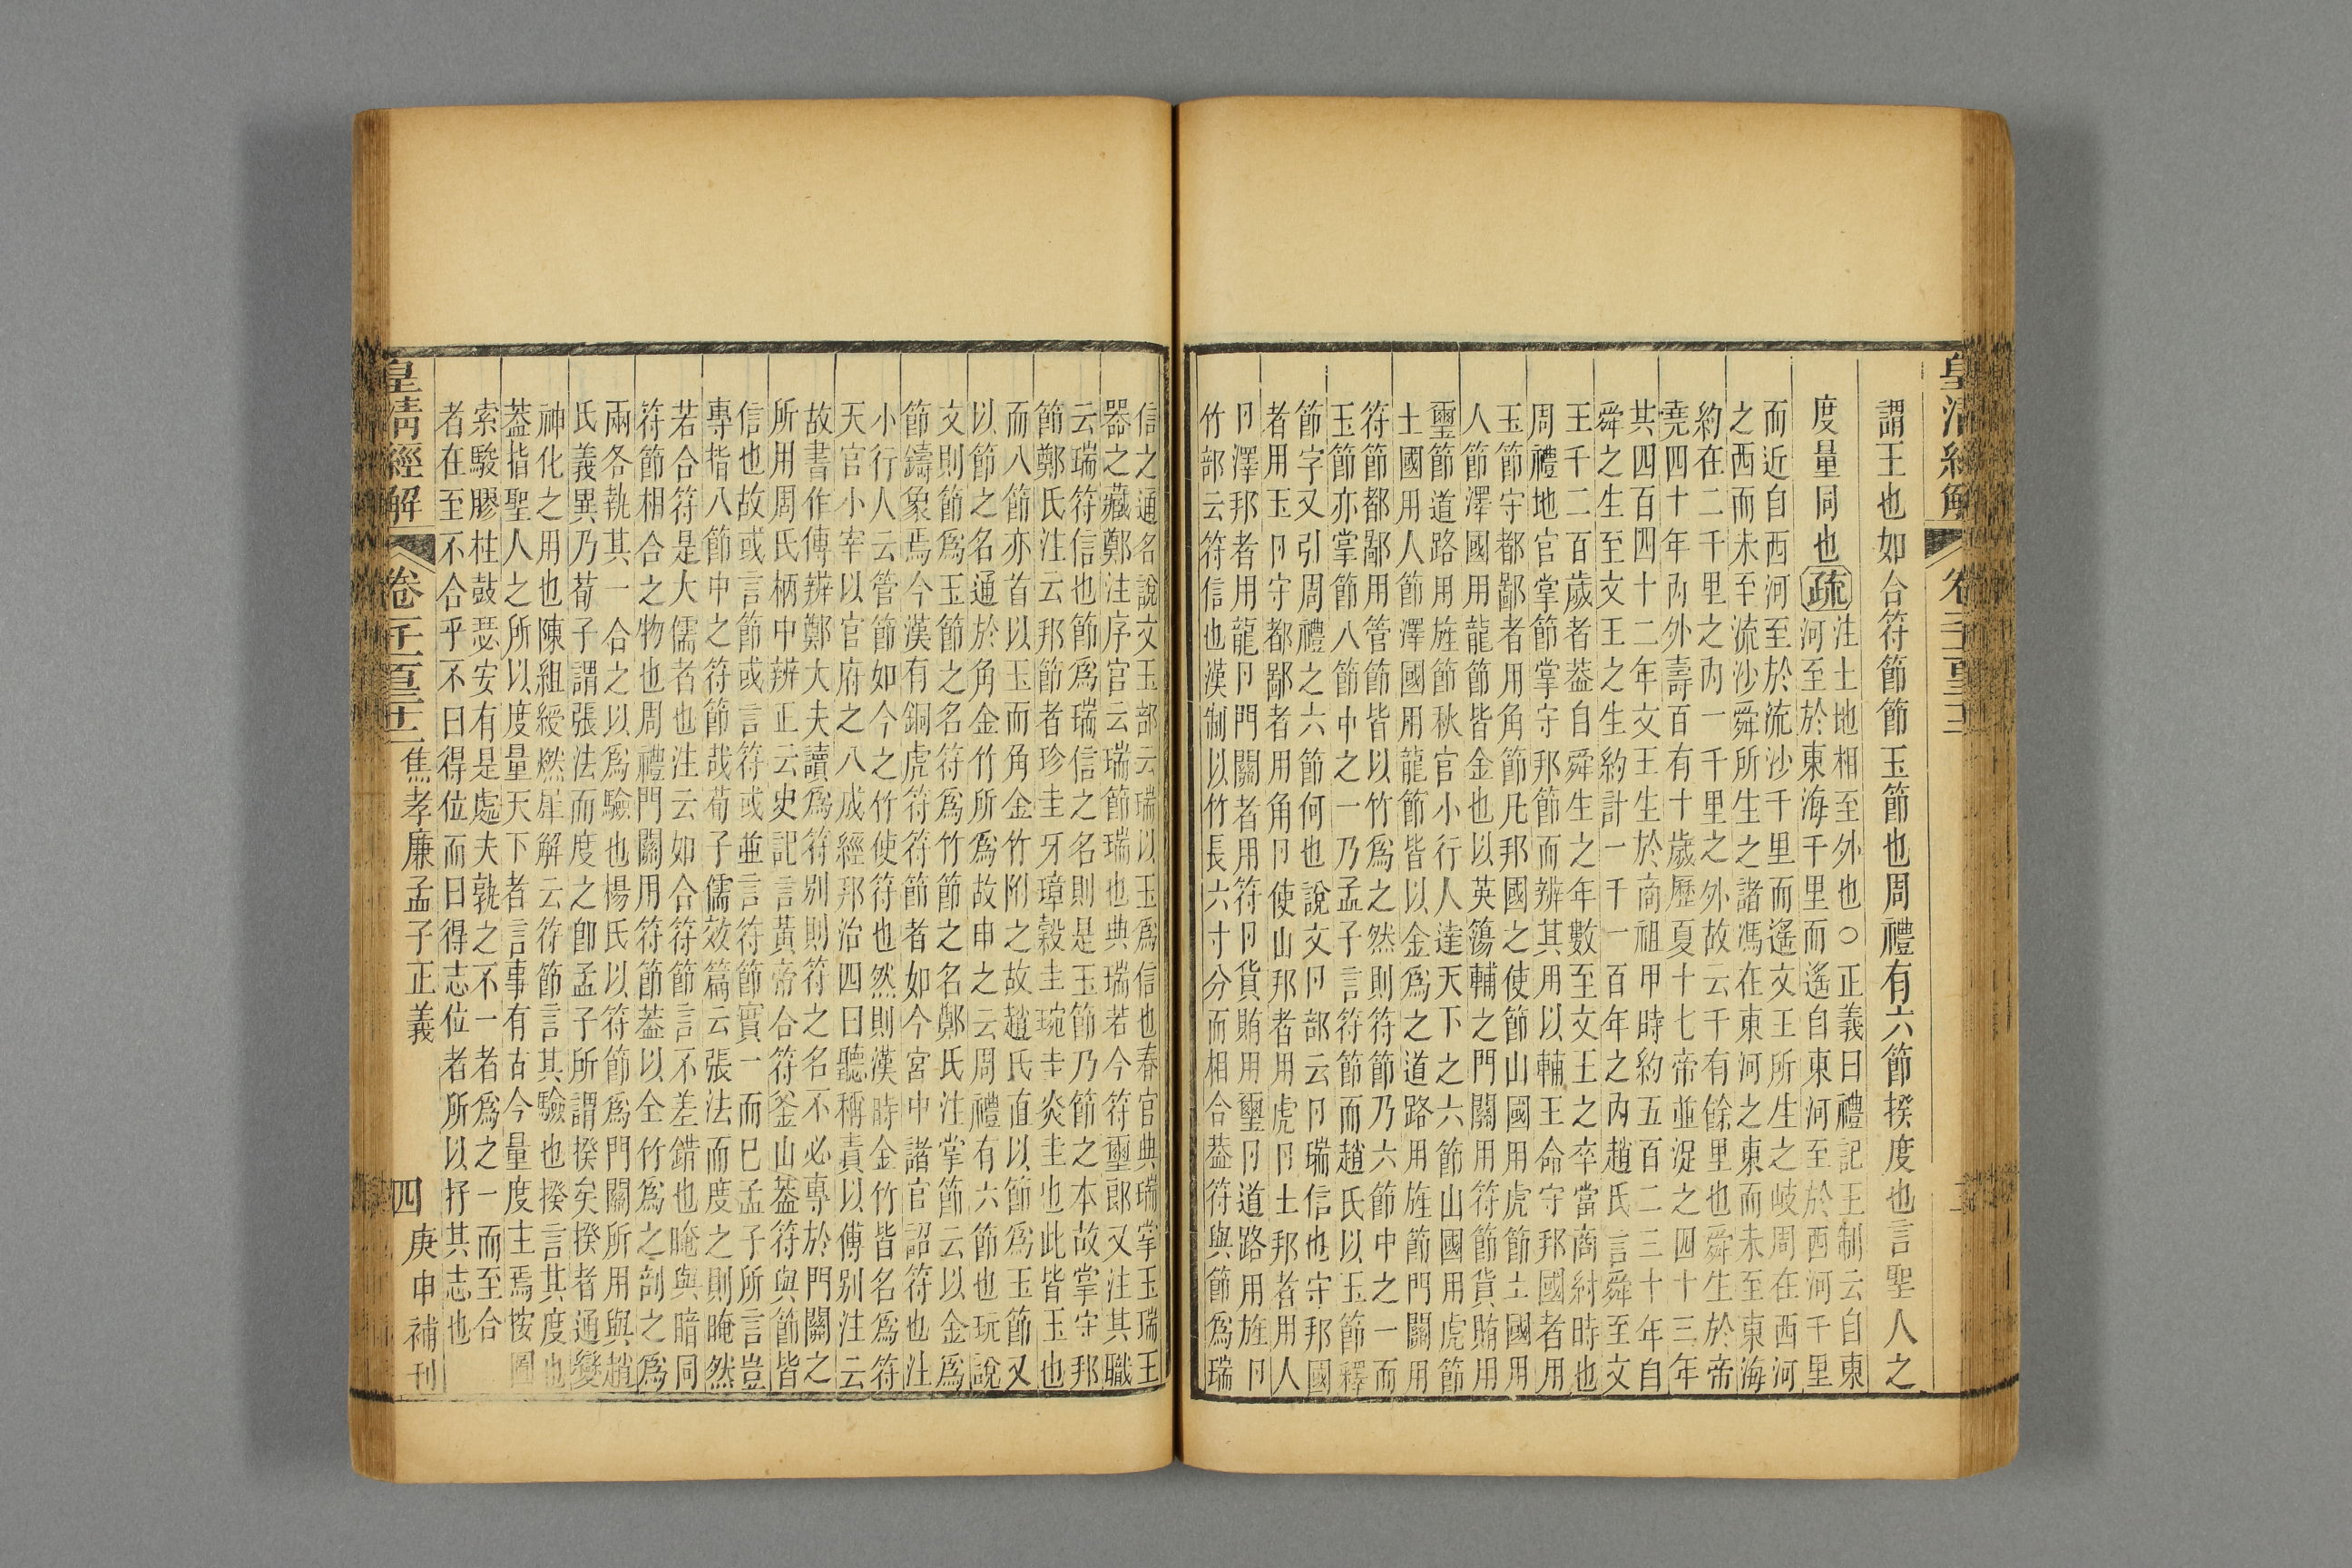 皇清經解
謂王也如合符節節玉節也周禮有六節揆度也言聖人之
度量同也疏
注土地相至外也○正義曰禮記王制云自東
河至於東海千里而遙自東河至於西河千里
而近自西河至於流沙千里而遙文王所生之岐周在西河
之西而未至流沙舜所生之諸馮在東河之東而未至東海
約在二千里之內一千里之外故云千有餘里也舜生於帝
堯四十年內外壽百有十歲歷夏十七帝並浞之四十三年
其四百四十二年文王生於商祖甲時約五百二三十年自
舜之生至文王之生約計一千一百年之內趙氏言舜至文
王千二百歲者葢自舜生之年數至文王之卒當商紂時也
周禮地官掌節掌守邦節而辨其用以輔王命守邦國者用
玉節守都鄙者用角節凡邦國之使節山國用虎節土國用
人節澤國用龍節皆金也以英簜輔之門關用符節貨賄用
璽節道路用旌節秋官小行人達天下之六節山國用虎節
土國用人節澤國用龍節皆以金爲之道路用旌節門關用
符節都鄙用管節皆以竹爲之然則符節乃六節中之一而
玉節亦掌節八節中之一乃孟子言符節而趙氏以玉節釋
節字又引周禮之六節何也說文卪部云卪瑞信也守邦國
者用玉卪守都鄙者用角卪使山邦者用虎卪土邦者用人
卪澤邦者用龍卪門關者用符卪貨賄用璽卪道路用旌卪
竹部云符信也漢制以竹長六寸分而相合葢符與節爲瑞
信之通名說文玉部云瑞以玉爲信也春官典瑞掌玉瑞玉
器之藏鄭注序官云瑞節瑞也典瑞若今符璽郎又注其職
云瑞符信也節爲瑞信之名則是玉節乃節之本故掌守邦
節鄭氏注云邦節者珍圭牙璋穀圭琬圭炎圭也此皆玉也
而八節亦首以玉而角金竹附之故趙氏直以節爲玉節又
以節之名通於角金竹所爲故申之云周禮有六節也玩說
文則節爲玉節之名符爲竹節之名鄭氏注掌節云以金爲
節鑄象焉今漢有銅虎符符節者如今宮中諸官詔符也注
小行人云管節如今之竹使符也然則漢時金竹皆名爲符
天官小宰以官府之八成經邦治四曰聽稱責以傅別注云
故書作傅辨鄭大夫讀爲符別則符之名不必專於門關之
所用周氏柄中辨正云史記言黃帝合符釜山葢符與節皆
信也故或言節或言符或並言符節實一而已孟子所言豈
專指八節中之符節哉荀子儒效篇云張法而度之則晻然
若合符是大儒者也注云如合符節言不差錯也晻與暗同
符節相合之物也周禮門關用符節葢以全竹爲之剖之爲
兩各執其一合之以爲驗也楊氏以符節爲門關所用與趙
氏義異乃荀子謂張法而度之卽孟子所謂揆矣揆者通變
神化之用也陳組綬燃犀解云符節言其驗也揆言其度也
葢指聖人之所以度量天下者言事有古今量度主焉按圖
索駿膠柱鼓瑟安有是處夫孰之不一者爲之一而至合
者在至不合乎不曰得位而曰得志位者所以抒其志也
皇清經解
焦孝廉孟子正義
四
庚申補刊